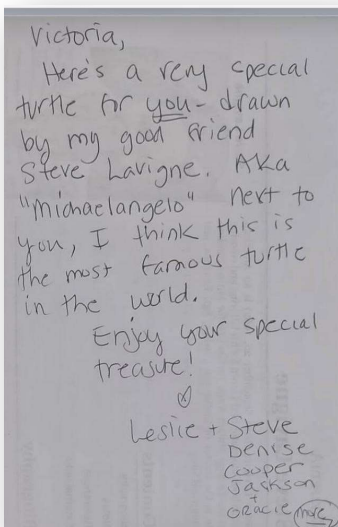 Victoria,
Here's a very special
turtle for you - drawn
by my good friend
Steve Lavigne. AKA
"Michaelangelo" next to
you, I think this is
the most famous turtle
in the world.
Enjoy your special
treasure!
Leslie + Steve
Denise
Cooper
Jackson
+
GRACIE more